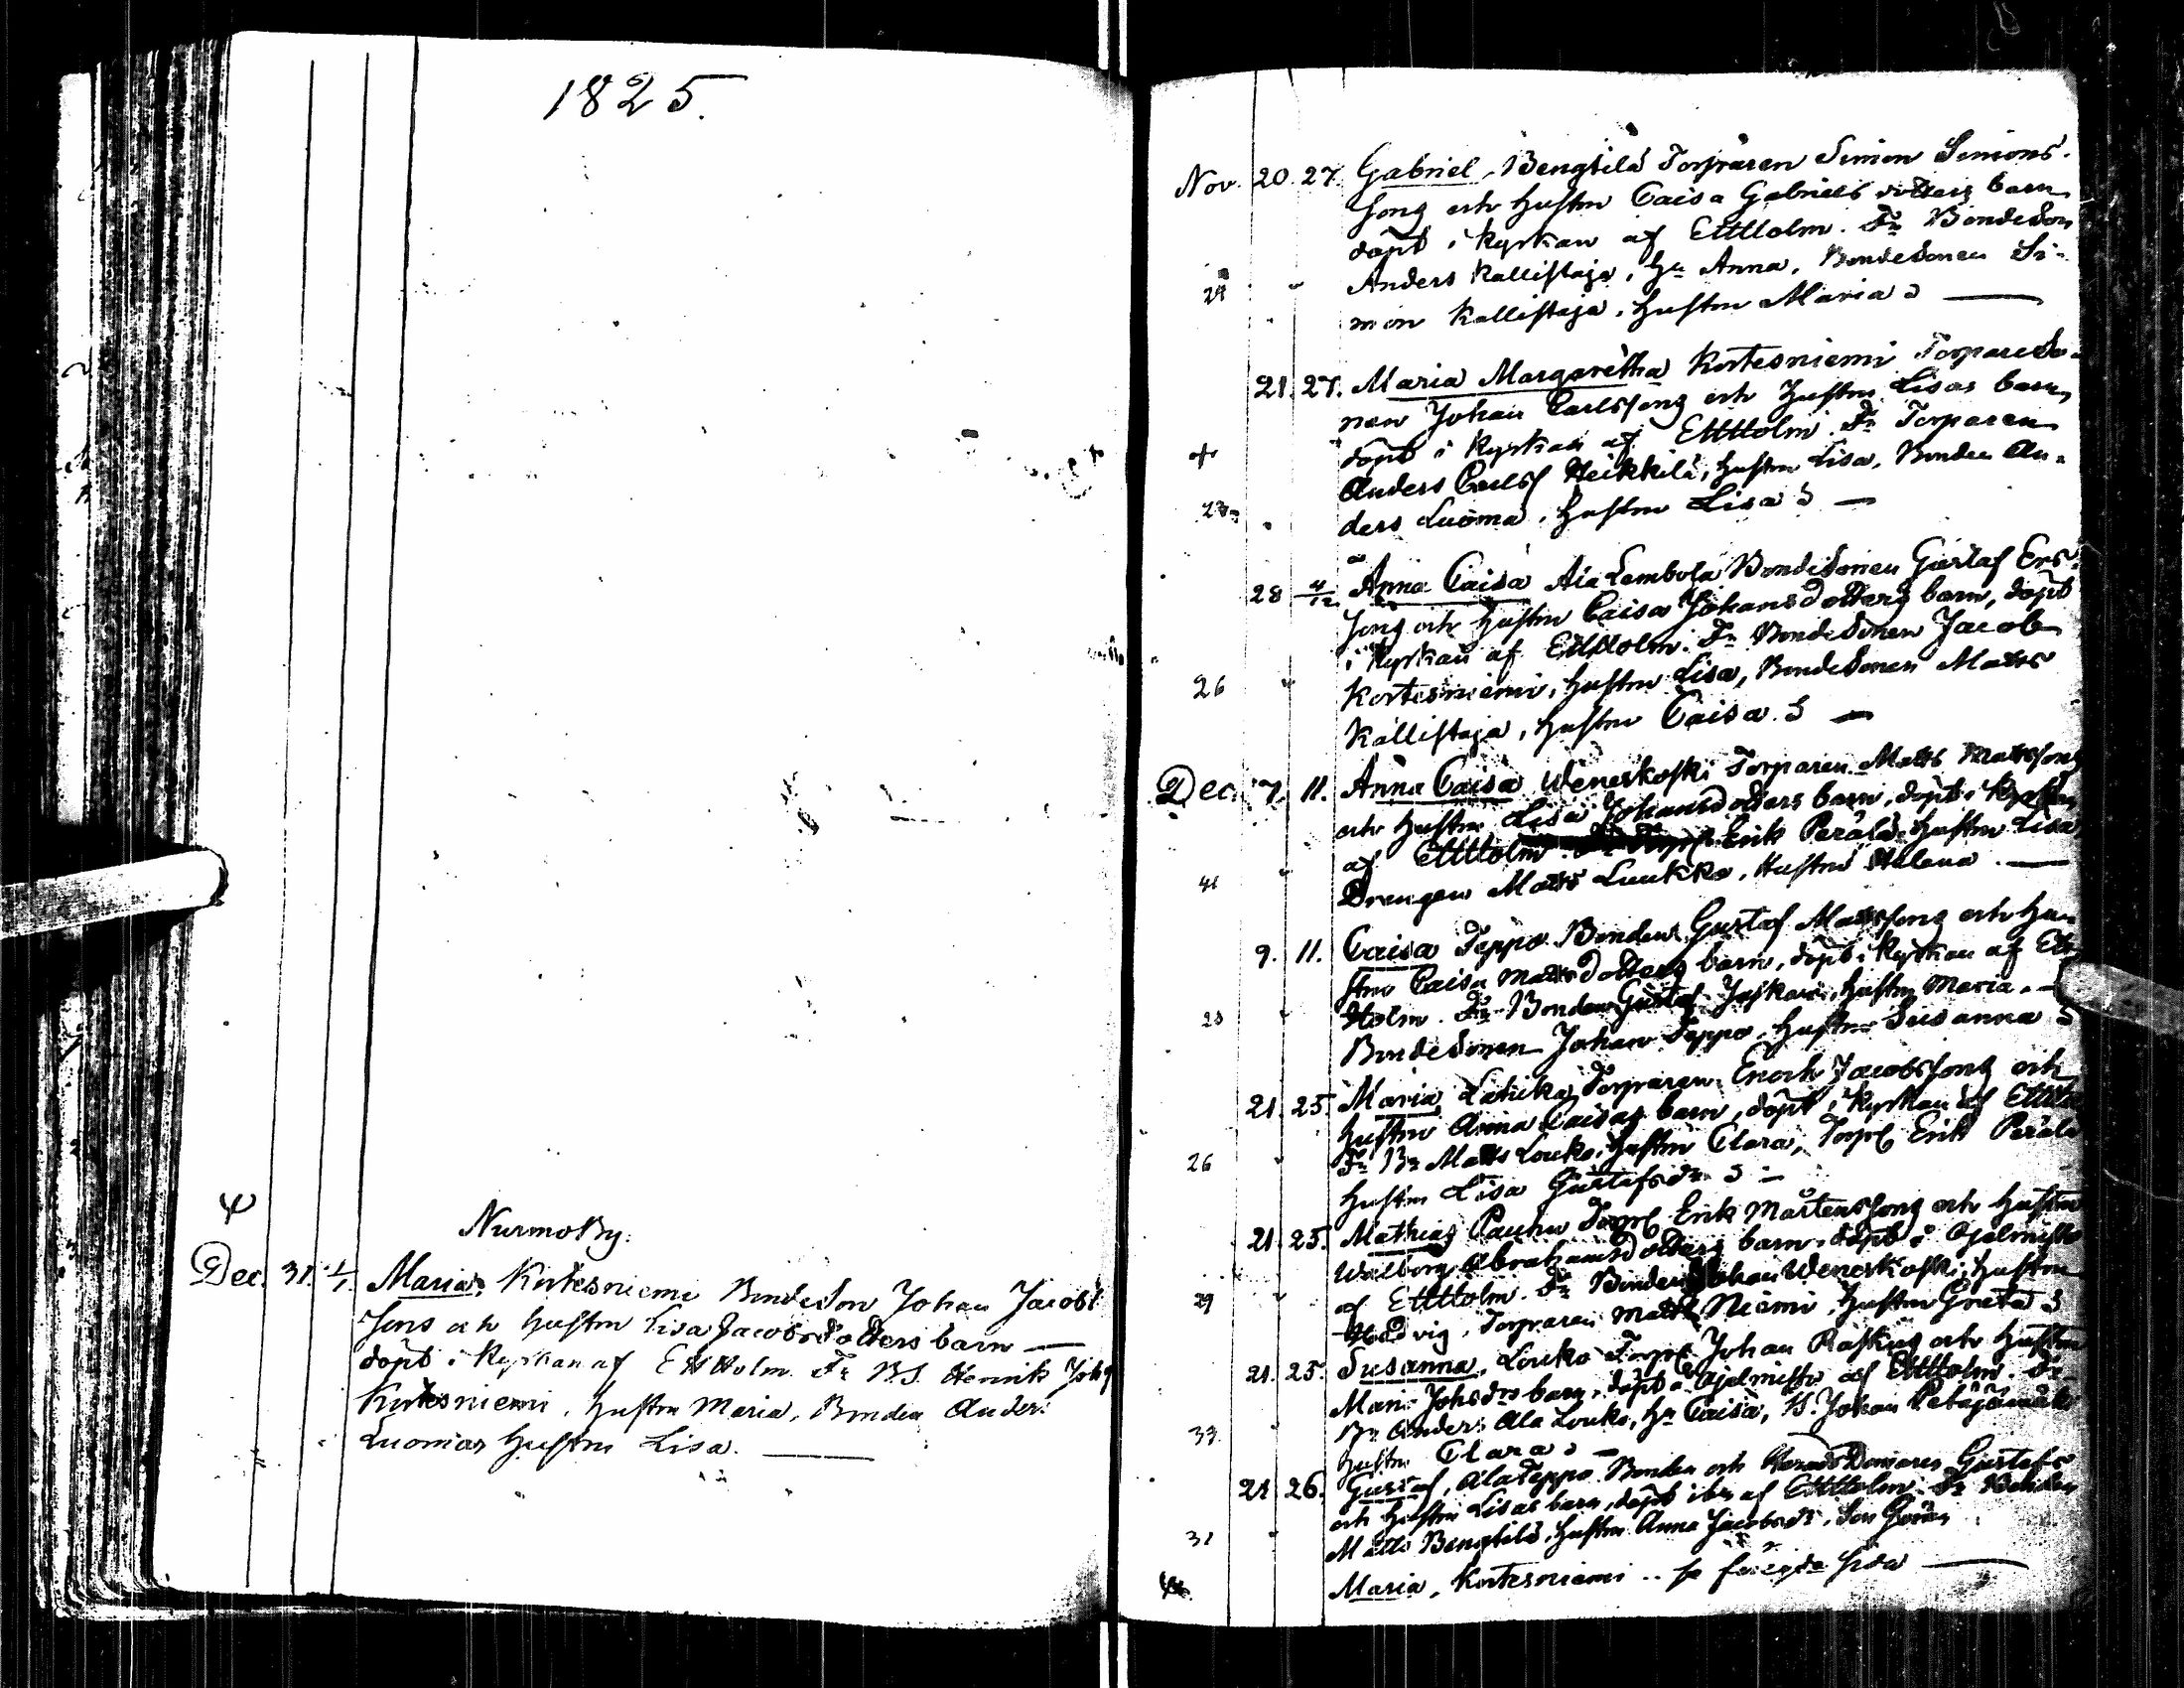 1825.
Nurmo By.
Dec. 31. 1/1 Maria, Kortesniemi Bondeson Johan Jacobs
sons och hustru Lisa Jacobsdotters barn —
döpt i Kyrkan af Ettholm. Fr B.S. Henrik Johs
Kortesniemi, hustru Maria, Bonden Anders
Luomas hustru Lisa. —
Nov. 20. 27. Gabriel, Bengtilä Torparen Simon Simons-
sons och hustru Caisa Gabriels dotters barn
döpt i kyrkan af Ettholm. Fr Bondeson
Anders Kallistaja, Hu Anna, Bondesonen Si-
29 mon Kallistaja, hustru Maria —
21. 27. Maria Margaretha Kortesniemi Torpareso-
nen Johan Carlssons och hustru Lisas barn,
döpt i kyrkan af Ettholm. Fr Torparen
Anders Carlss Heikkilä, hustru Lisa, Bonden An-
23 ders Luoma, hustru Lisa —
28 4/12 Anna Caisa Ala Lembola Bondesonen Gustaf Ers-
sons och hustru Caisa Johansdotters barn, döpt
i Kyrkan af Ettholm. Fr Bondesonen Jacob
26 Kortesniemi, hustru Lisa, Bondesonen Matts
Kallistaja, hustru Caisa. —
Dec. 7. 11. Anna Caisa Weneskoski Torparen Matts Mattssons
och hustru Lisa Johansdotters barn, döpt i Kyrkan
af Ettholm. Erik Perälä, hustru Lisa
41 Drengen Matts Luukko, Hustru Helena. —
9. 11. Caisa Teppo Bonden Gustaf Mattssons och hu-
stru Caisa Mattsdotters barn, döpt i Kyrkan af Ett-
28 holm. Fr Bonden Gustaf Jaskari, hustru Maria. —
Bondesonen Johan Teppo, hustru Susanna
21. 25. Maria Torparen Enoch Jacobssons och
hustru Anna Caisas barn, döpt i Kyrkan af Ettholm
26 Fr Bn Matts Louko, hustru Clara, Torp Erik Perälä
hustru Lisa Gustafsdr —
21. 25. Mathias Pauhu Torp Erik Mårtenssons och hustru
Walborg Abrahamsdotters barn, döpt i
29 af Ettholm. Fr Bonden Johan Weneskoski, hustru
Hedvig, Torparen Matts Niemi, hustru Greta
21. 25. Susanna, Louko Torp Johan och hustru
Maria Johsdrs barn, döpt af Ettholm. Fr
33 Bn Anders Ala Louko, Hu Caisa, Johan Petäjämäki
hustru Clara —
24 26. Gustaf, Ala Teppo Bonden och Gustafs
och hustru Lisas barn, döpt ibm af Ettholm. Fr Bonden
31 Matts Bengtilä, hustru Anna Jacobsdr.
Maria, Kortesniemi .. se föregde sida —